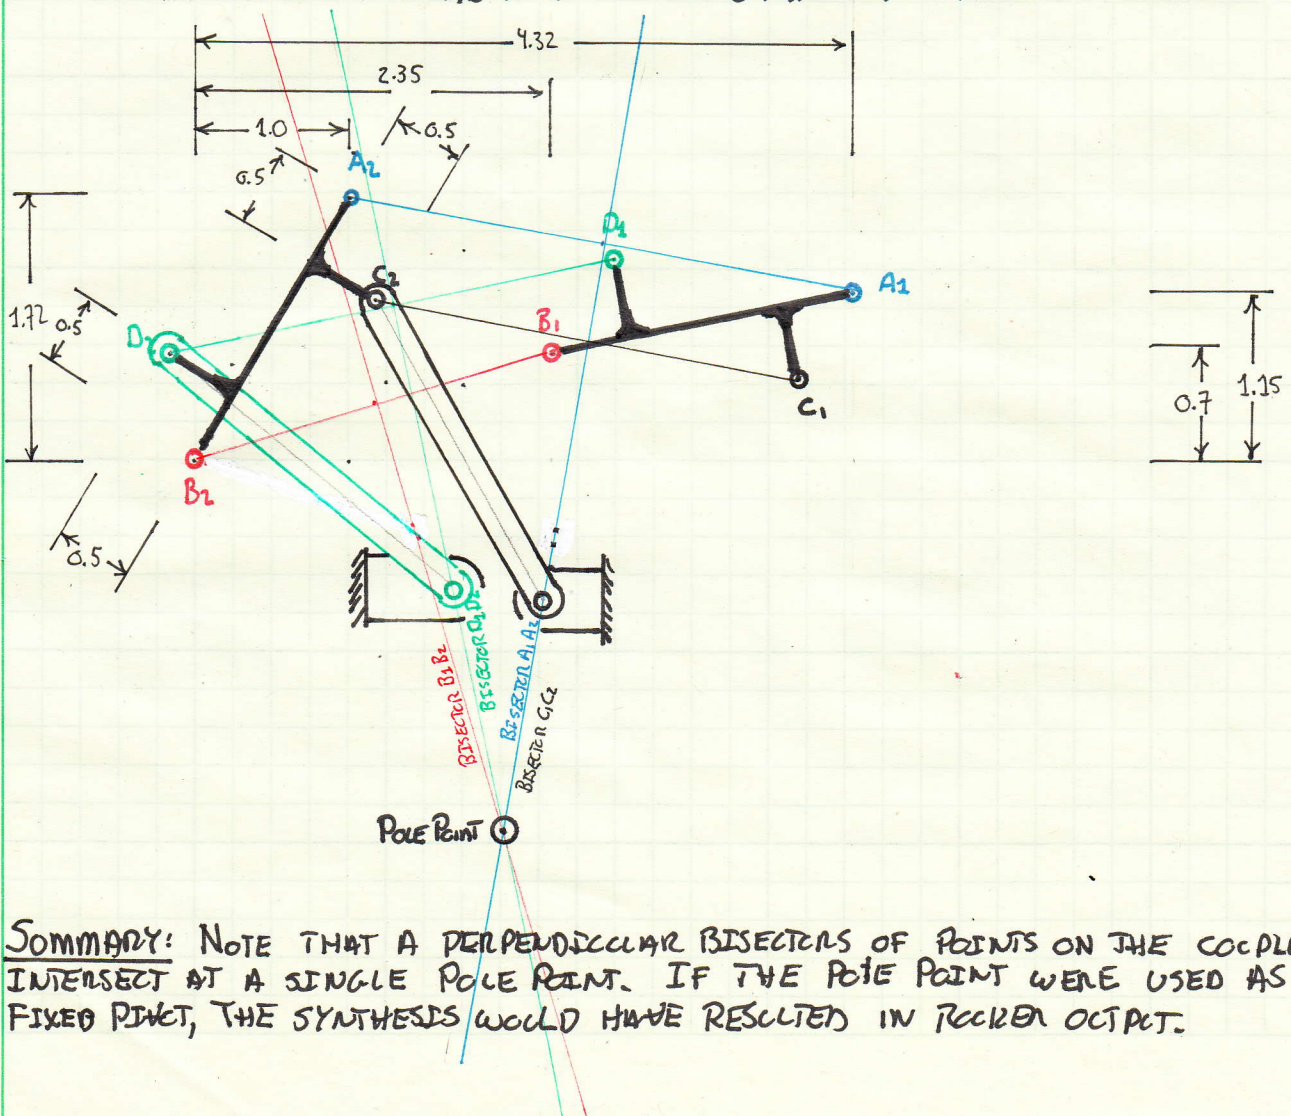 4.32
2.35
1.0
0.5
0.5
A2
D1
A1
1.72
0.5
D2
C2
B1
C1
0.7
1.15
B2
0.5
BISECTOR B1B2
BISECTOR D1D2
BISECTOR A1A2
BISECTOR C1C2
POLE POINT
SUMMARY: NOTE THAT A PERPENDICULAR BISECTORS OF POINTS ON THE COUPL
INTERSECT AT A SINGLE POLE POINT. IF THE POLE POINT WERE USED AS
FIXED PIVOT, THE SYNTHESIS WOULD HAVE RESULTED IN ROCKER OUTPUT.